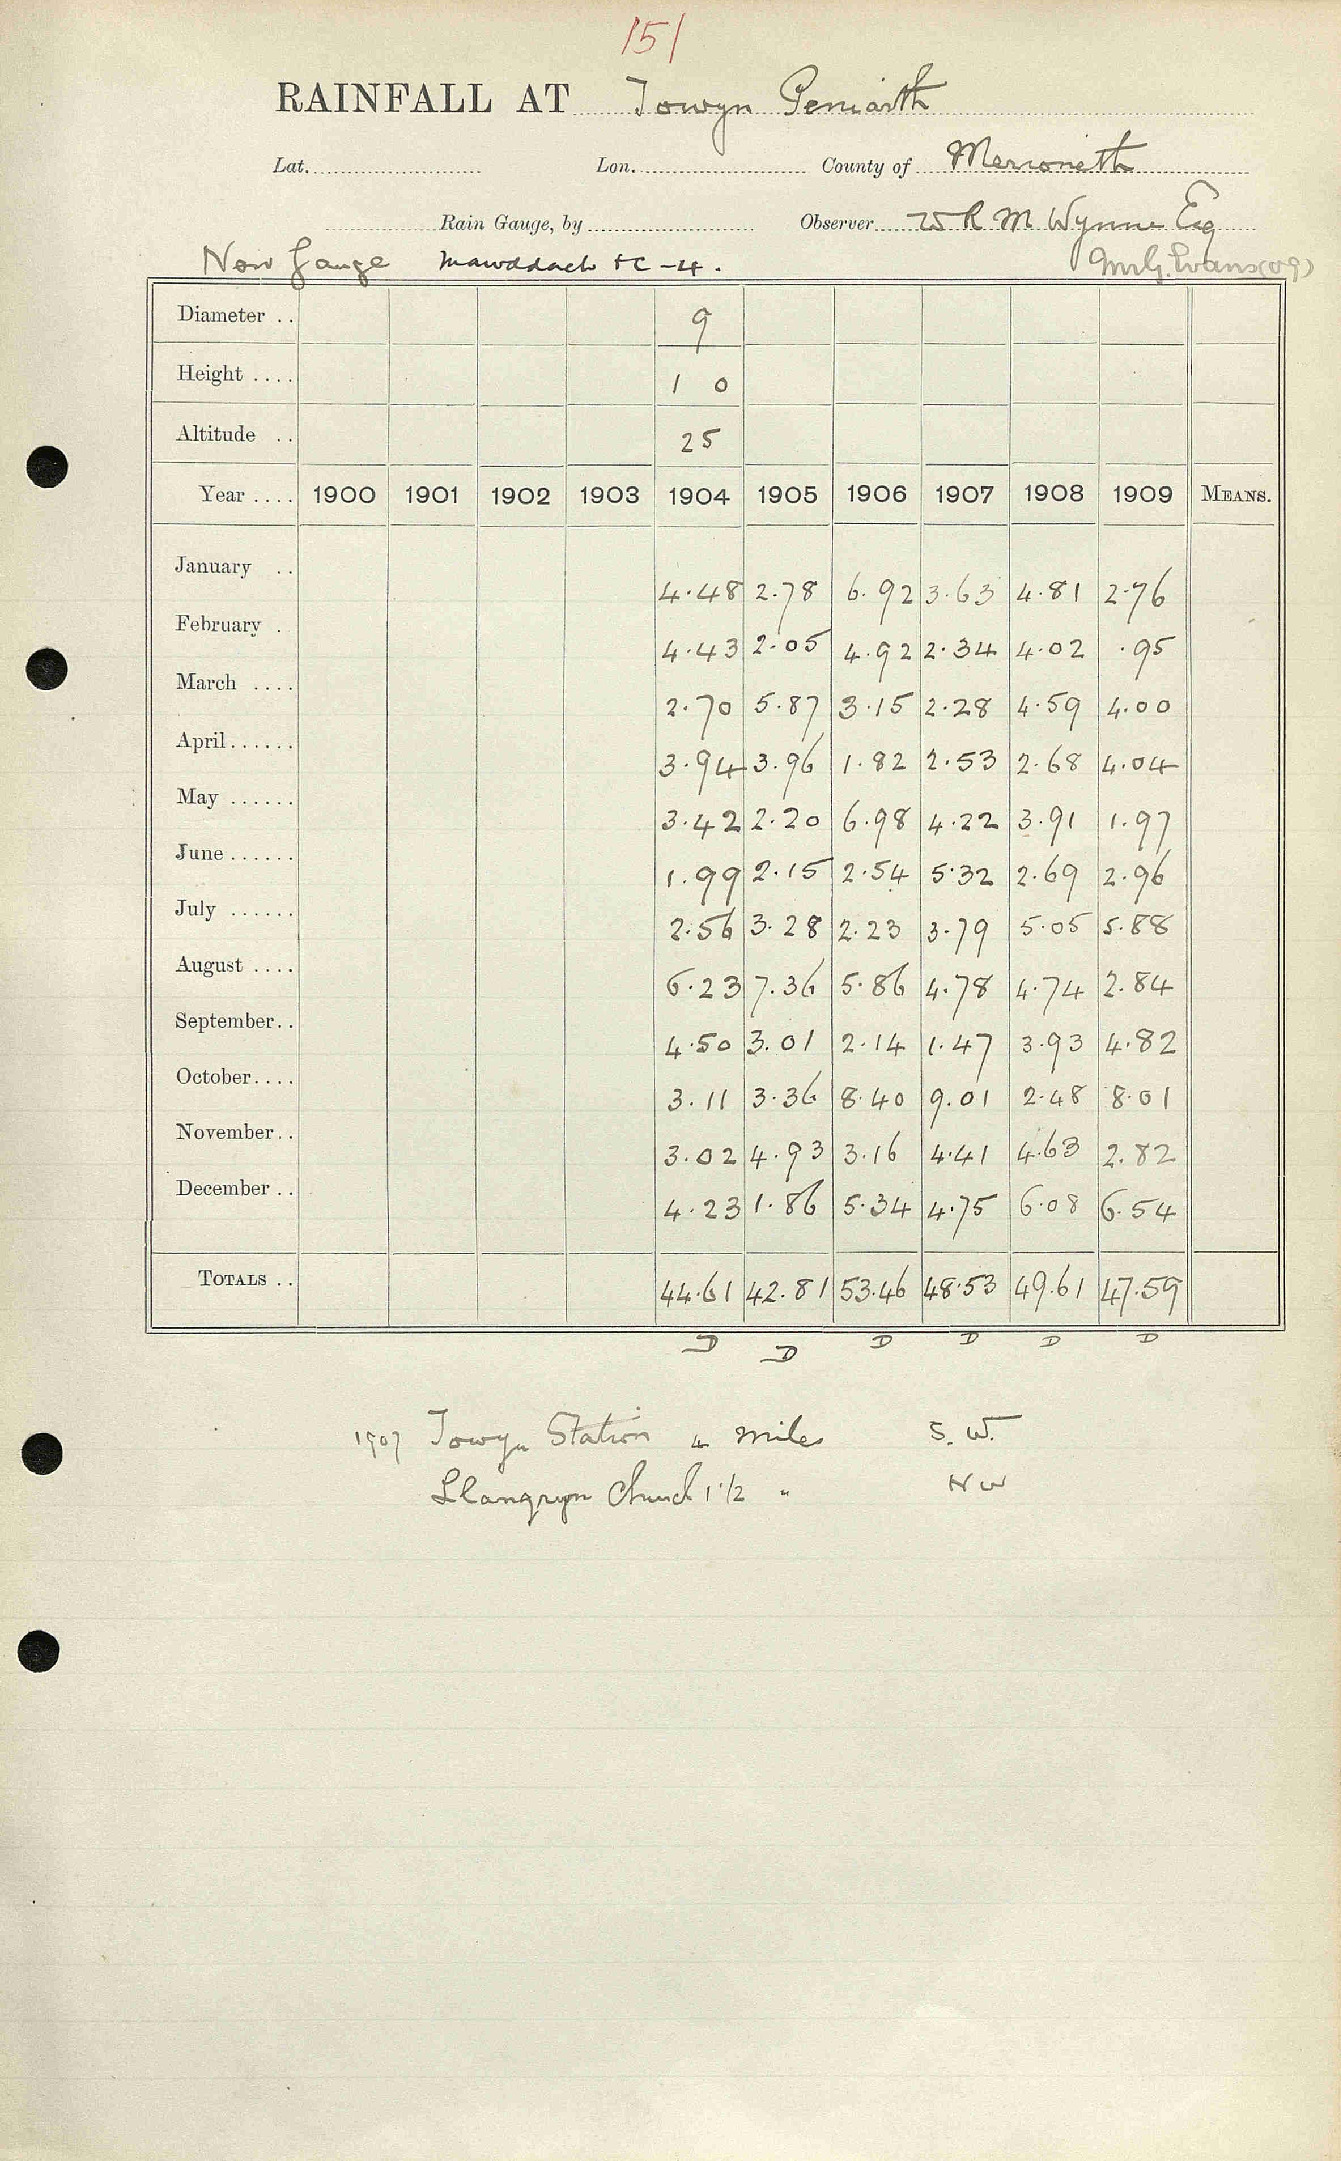 151
RAINFALL AT Towyn Peniarth
Lat. Lon. County of Merioneth
Rain Gauge, by Observer W R M Wynne Esq
New Gauge Mawddach &c -4. Mr G. Evans (09)
Diameter .. 9
Height .... 1 0
Altitude .. 25
Year .... 1900 1901 1902 1903 1904 1905 1906 1907 1908 1909 MEANS.
January .. 4.48 2.78 6.92 3.63 4.81 2.76
February . 4.43 2.05 4.92 2.34 4.02 .95
March .... 2.70 5.87 3.15 2.28 4.59 4.00
April...... 3.94 3.96 1.82 2.53 2.68 4.04
May ...... 3.42 2.20 6.98 4.22 3.91 1.97
June...... 1.99 2.15 2.54 5.32 2.69 2.96
July ...... 2.56 3.28 2.23 3.79 5.05 5.88
August .... 6.23 7.36 5.86 4.78 4.74 2.84
September.. 4.50 3.01 2.14 1.47 3.93 4.82
October.... 3.11 3.36 8.40 9.01 2.48 8.01
November.. 3.02 4.93 3.16 4.41 4.63 2.82
December .. 4.23 1.86 5.34 4.75 6.08 6.54
TOTALS .. 44.61 42.81 53.46 48.53 49.61 47.59
D D D D D D
1907 Towyn Station 4 miles S. W.
Llangryn Church 1 1/2 " NW